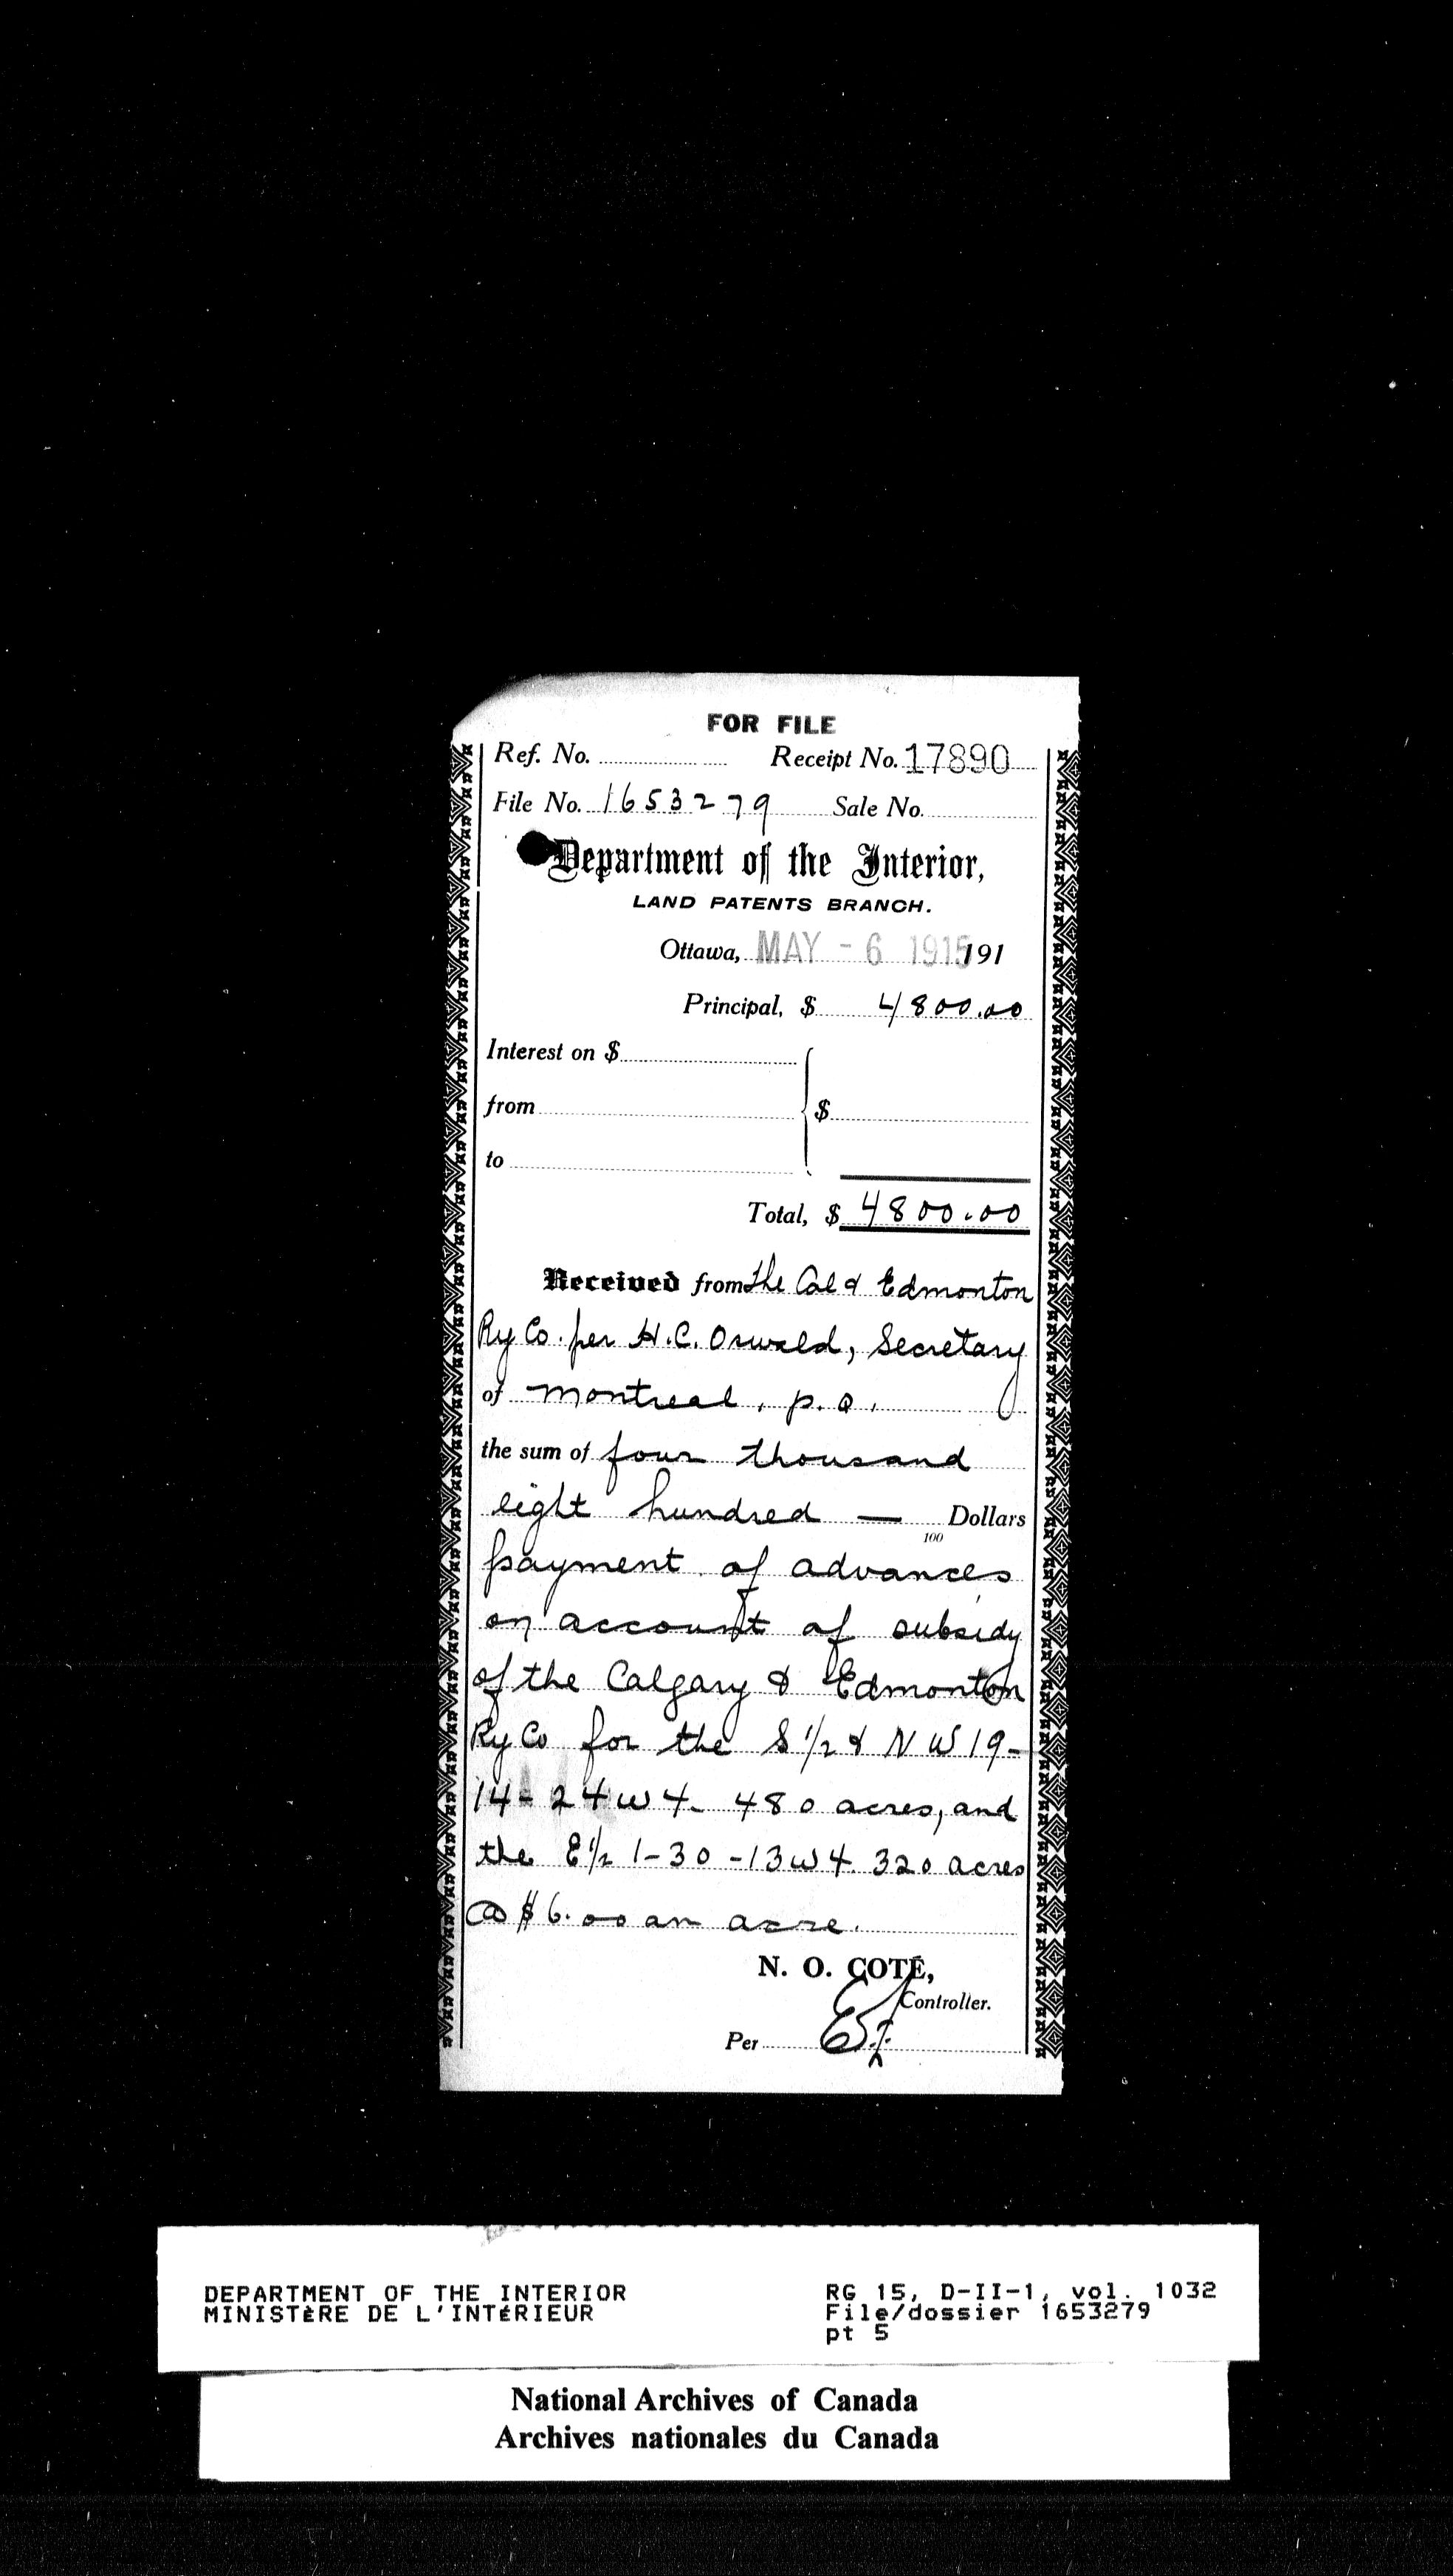 FOR FILE
Ref. No. Receipt No. 17890
File No. 1653279 Sale No.
Department of the Interior,
LAND PATENTS BRANCH.
Ottawa, MAY - 6 1915 191
Principal, $ 4800.00
Interest on $
from $
to
Total, $ 4800.00
Received from the Cal & Edmonton
Ry Co. per H.C. Oswald, Secretary
of Montreal, P.Q.
the sum of four thousand
eight hundred — Dollars
100
payment of advances
on account of subsidy
of the Calgary & Edmonton
Ry Co for the S 1/2 & N W 19-
14-24 w 4. 480 acres, and
the E 1/2 1-30-13 w 4 320 acres
@ $6.00 an acre.
N. O. COTÉ,
Controller.
Per
DEPARTMENT OF THE INTERIOR RG 15, D-II-1, vol. 1032
MINISTÈRE DE L'INTÉRIEUR File/dossier 1653279
pt 5
National Archives of Canada
Archives nationales du Canada